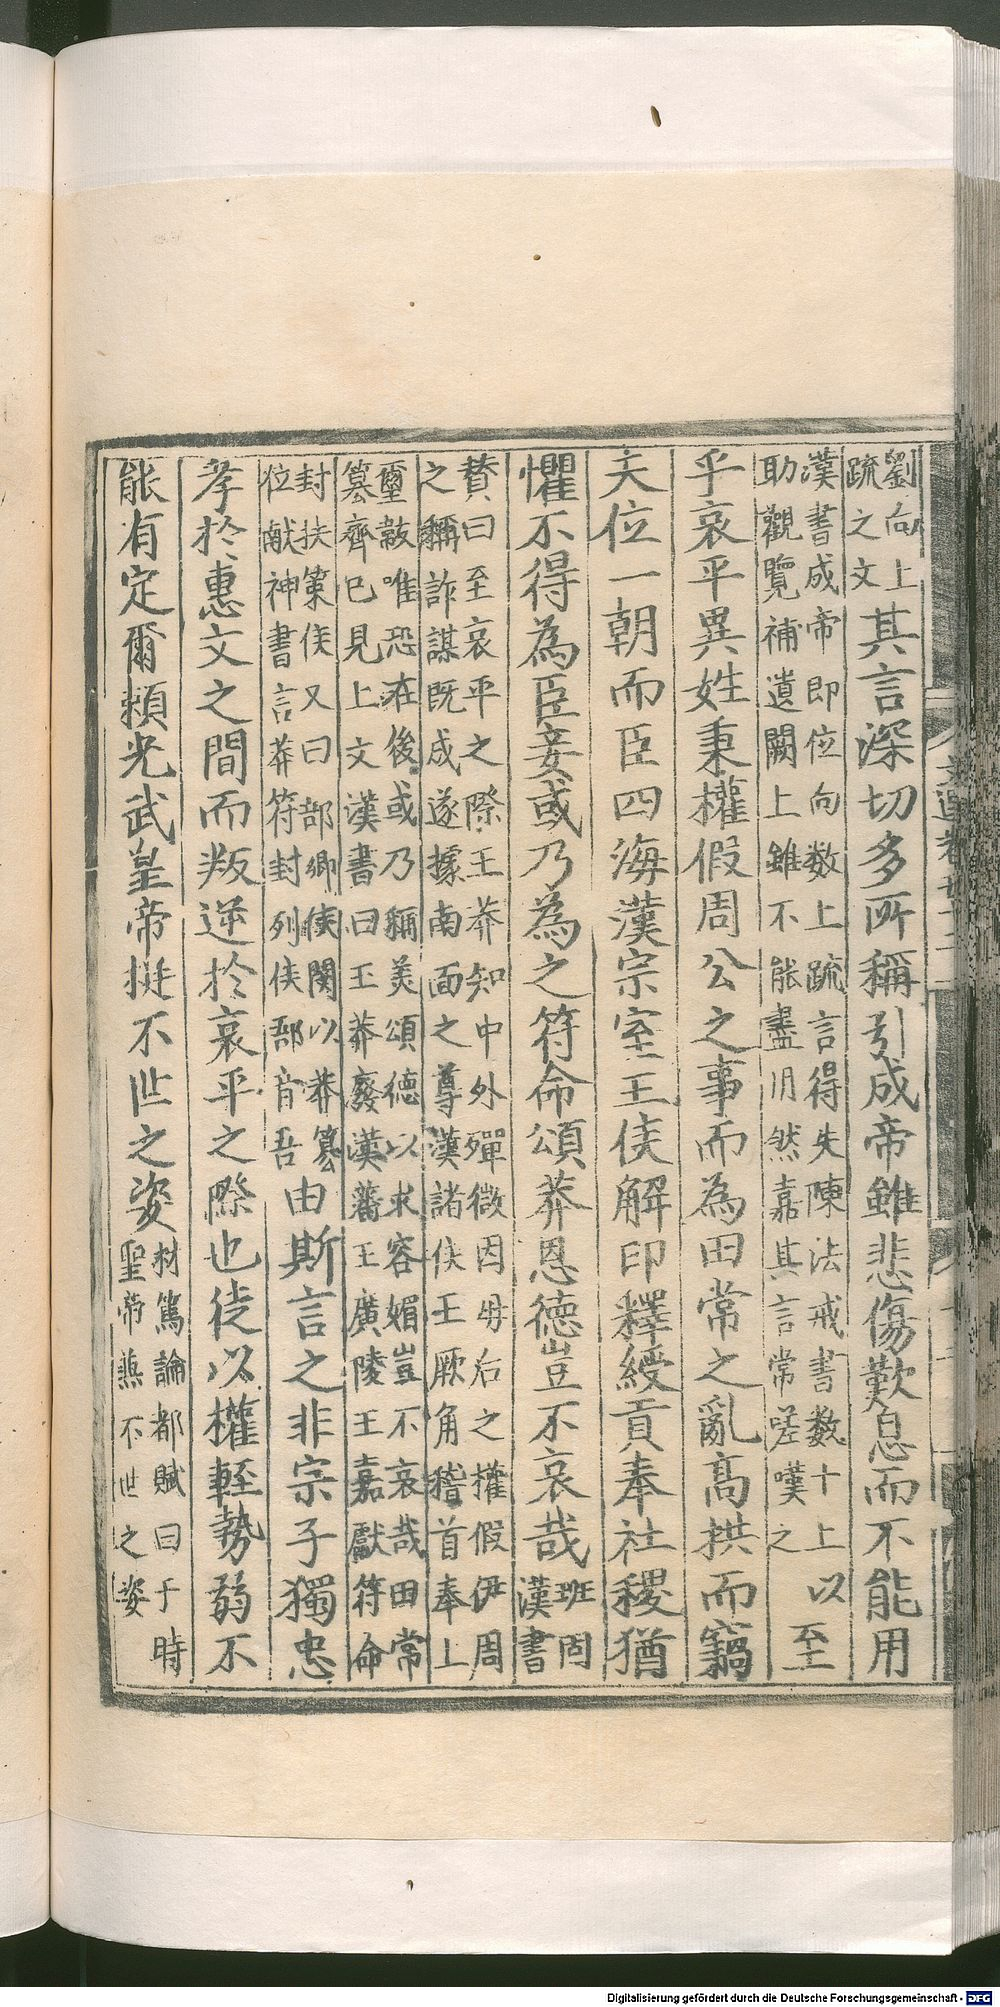 劉向上疏之文其言深切多所稱引成帝雖悲傷歎息而不能用
漢書成帝即位向数上疏言得失陳法戒書数十上以助觀覽補遺闕上雖不能盡用然嘉其言常嗟嘆之至
乎哀平異姓秉權假周公之事而為田常之亂高拱而竊
天位一朝而臣四海漢宗室王侯解印釋綬貢奉社稷猶
懼不得為臣妾或乃為之符命頌莽恩德豈不哀哉班固漢書
賛曰至哀平之際王莽知中外殫微因毋后之權假伊周之稱詐謀既成遂據南面之尊漢諸侯王厥角稽首奉上
璽韍唯恐在後或乃稱美頌德以求容媚豈不哀哉田常簒齊巳見上文漢書曰王莽廢漢藩王廣陵王嘉獻符命
封扶策侯又曰郚鄉侯閔以莽簒位献神書言莽符封列侯郚音吾由斯言之非宗子獨忠
孝於惠文之間而叛逆於哀平之際也徒以權輕勢弱不
能有定爾頼光武皇帝挺不世之姿材篤論都賦曰于時聖帝𤋎不世之姿
文選卷
Digitalisierung gefördert durch die Deutsche Forschungsgemeinschaft - DFG